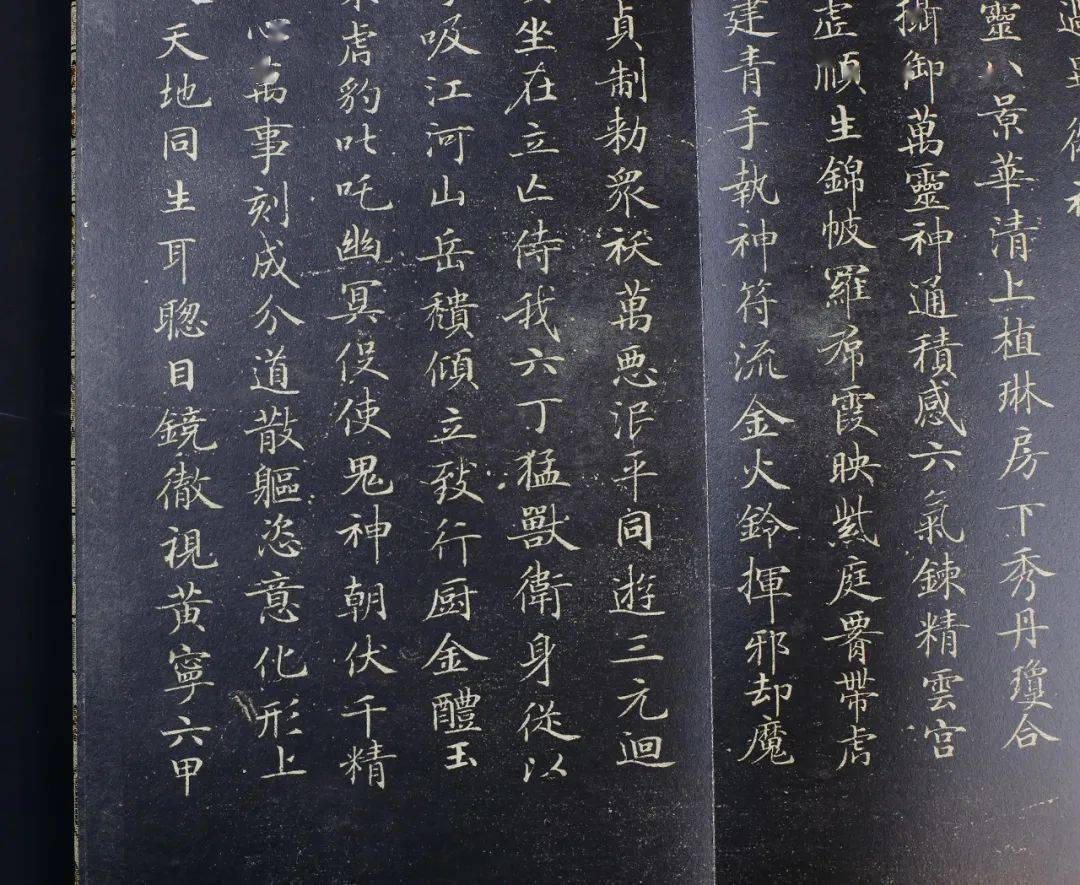 靈八景華清上植琳房下秀丹瓊合
攝御萬靈神通積感六氣鍊精雲宮
虛順生錦帔羅帬霞映紫庭腰帶虎
建青手執神符流金火鈴揮邪却魔
貞制勑衆祅萬惡泯平同遊三元迴
坐在立亡侍我六丁猛獸衛身從以
吸江河山岳穨傾立致行厨金醴玉
虎豹叱吒幽冥役使鬼神朝伏千精
心萬事刻成分道散軀恣意化形上
天地同生耳聰目鏡徹視黃寧六甲